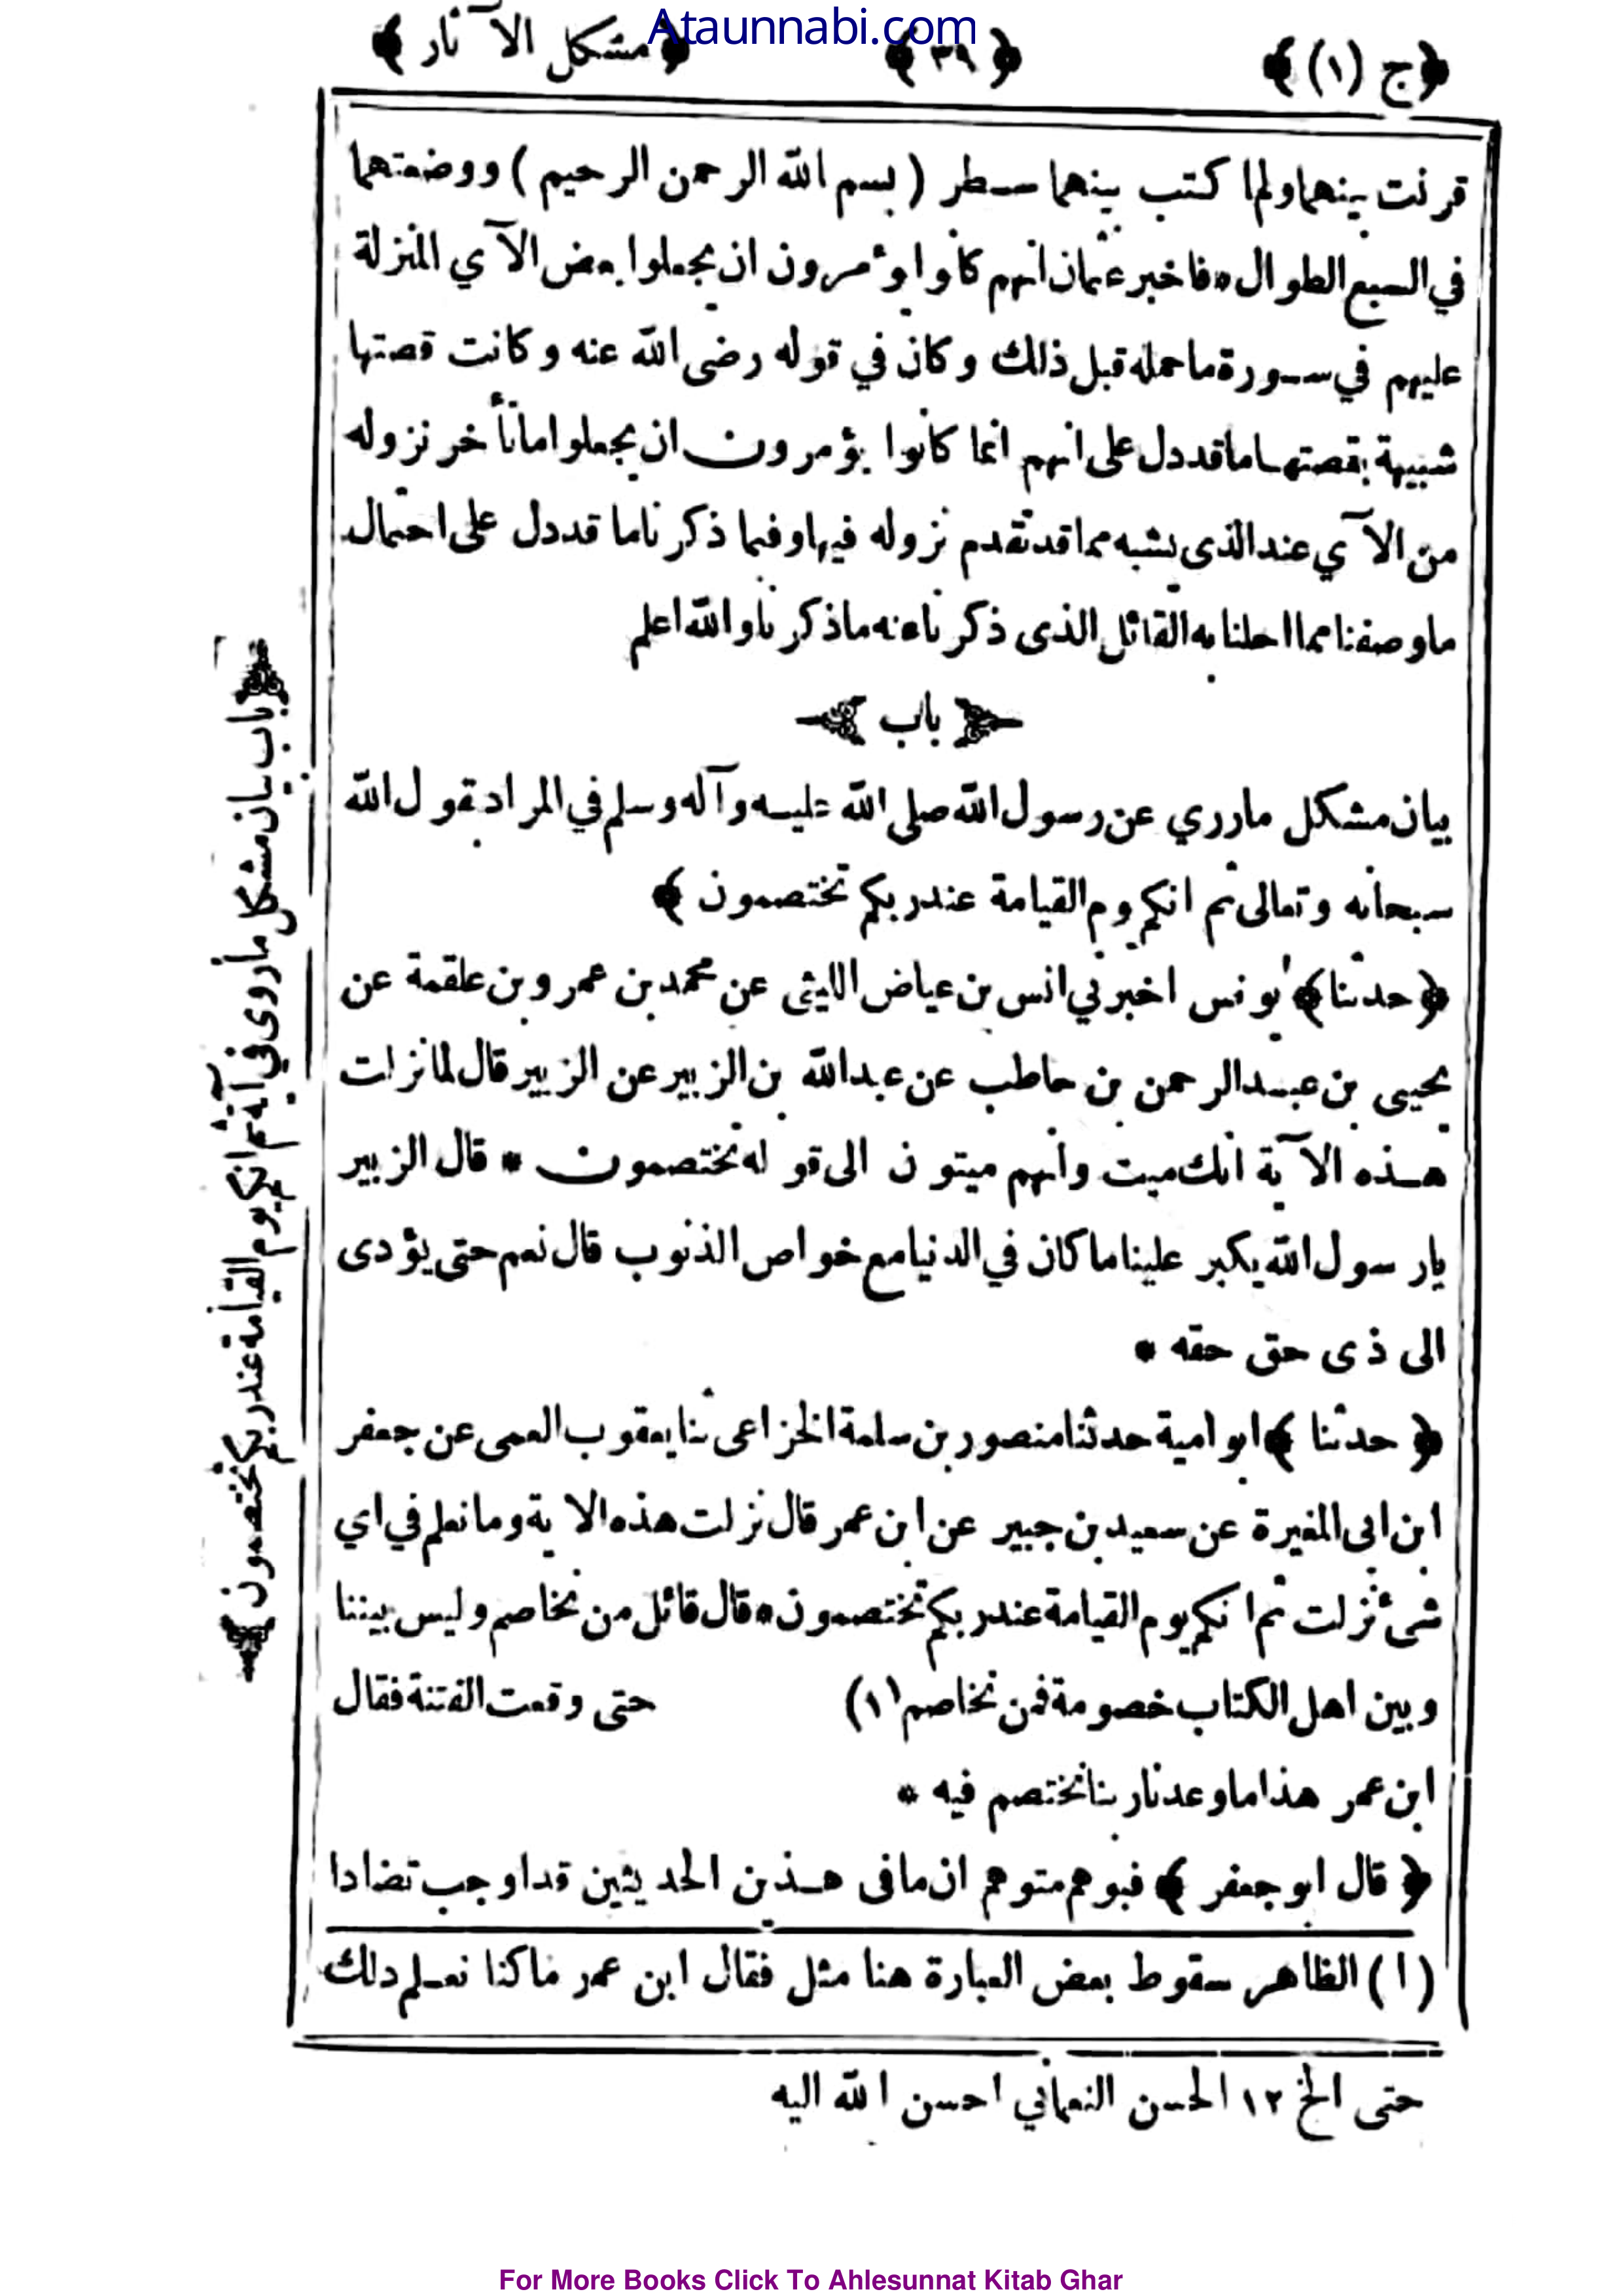 Ataunnabi.com
﴿ج (١)﴾ ﴿٣٩﴾ ﴿مشكل الآثار﴾
قرنت بينهما ولم اكتب بينهما سطر (بسم الله الرحمن الرحيم) ووضعتهما
في السبع الطوال * فاخبر عثمان انهم كانوا يؤمرون ان يجعلوا بعض الآي المنزلة
عليهم في سورة ما حمله قبل ذلك وكان في قوله رضى الله عنه وكانت قصتها
شبيهة بقصتها ما قد دل على انهم انما كانوا يؤمرون ان يجعلوا ما تأخر نزوله
من الآي عند الذى يشبه مما قد تقدم نزوله فيها وفيما ذكرنا ما قد دل على احتمال
ما وصفنا مما احلنا به القائل الذى ذكرناه منه ما ذكرنا والله اعلم
﴿ باب ﴾
بيان مشكل ما روي عن رسول الله صلى الله عليه وآله وسلم في المراد بقول الله
سبحانه وتعالى ثم انكم يوم القيامة عند ربكم تختصمون ﴾
﴿حدثنا﴾ يونس اخبرني انس بن عياض الليثى عن محمد بن عمرو بن علقمة عن
يحيى بن عبد الرحمن بن حاطب عن عبد الله بن الزبير عن الزبير قال لما نزلت
هذه الآية انك ميت وانهم ميتون الى قوله تختصمون * قال الزبير
يا رسول الله يكبر علينا ما كان في الدنيا مع خواص الذنوب قال نعم حتى يؤدى
الى ذى حق حقه *
﴿ حدثنا ﴾ ابو امية حدثنا منصور بن سلمة الخزاعى ثنا يعقوب العمى عن جعفر
ابن ابى المغيرة عن سعيد بن جبير عن ابن عمر قال نزلت هذه الاية وما نعلم في اي
شىء نزلت ثم انكم يوم القيامة عند ربكم تختصمون * قال قائل من نخاصم وليس بيننا
وبين اهل الكتاب خصومة فمن نخاصم (١) حتى وقعت الفتنة فقال
ابن عمر هذا ما وعدنا ربنا نختصم فيه *
﴿ قال ابو جعفر ﴾ فيوهم متوهم ان ما فى هذين الحديثين قد اوجب تضادا
(١) الظاهر سقوط بعض العبارة هنا مثل فقال ابن عمر ما كنا نعلم ذلك
حتى الخ ١٢ الحسن النعماني احسن الله اليه
﴿باب بيان مشكل ما روى في آية ثم انكم يوم القيامة عند ربكم تختصمون﴾
For More Books Click To Ahlesunnat Kitab Ghar